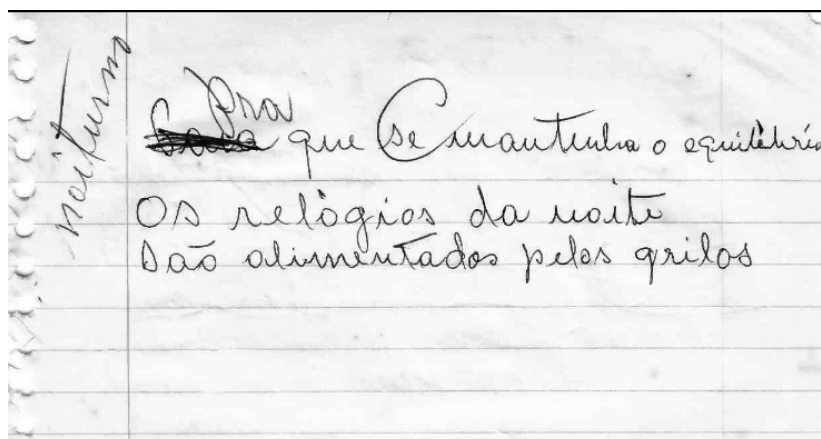 noiturno
Pra
que se mantenha o equilíbrio
Os relógios da noite
São alimentados pelos grilos